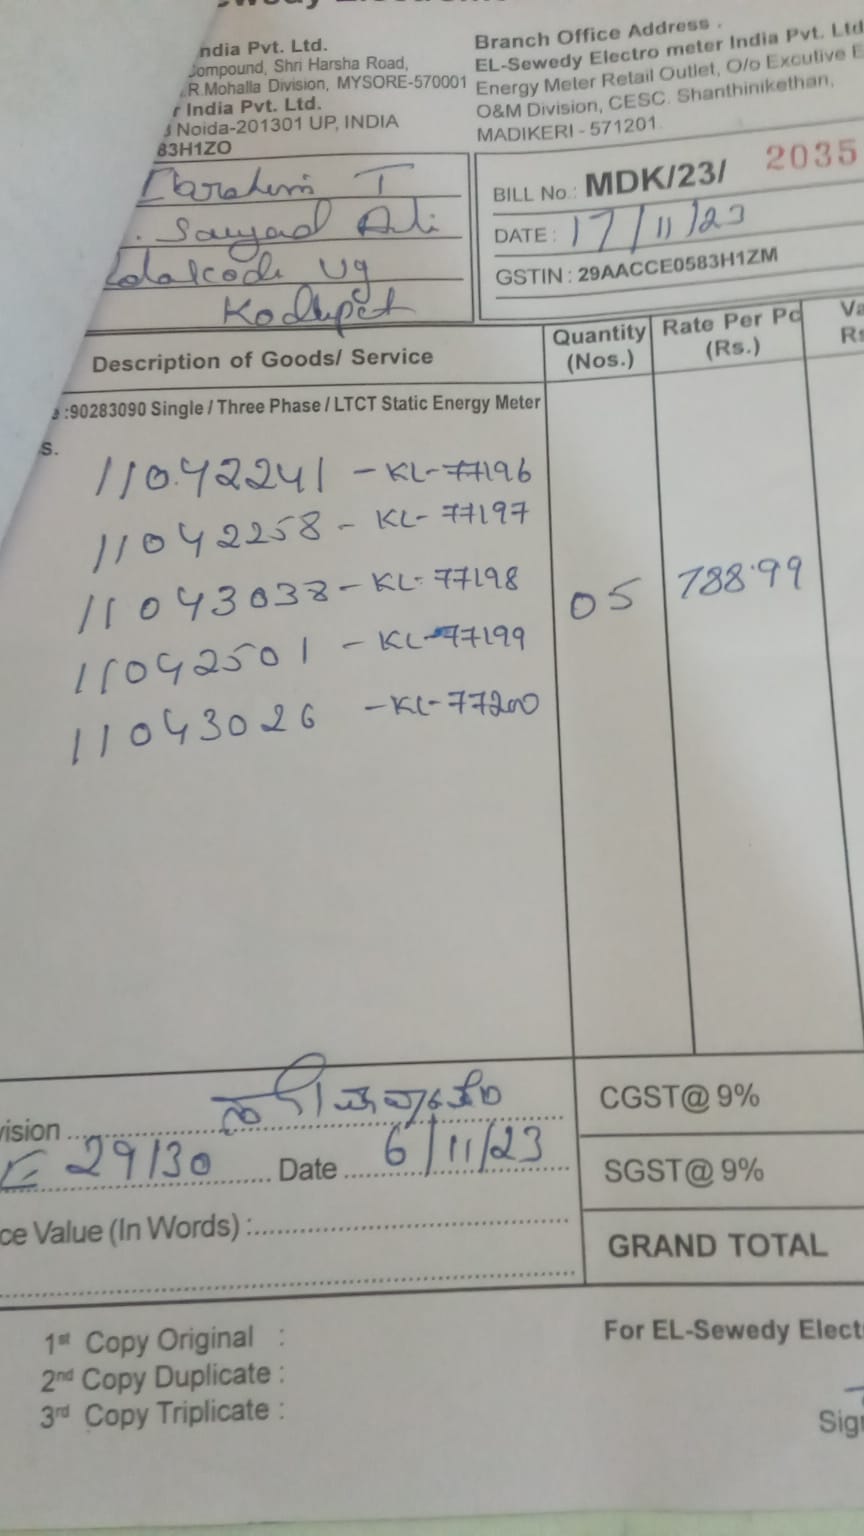 ndia Pvt. Ltd.
Compound, Shri Harsha Road,
.R.Mohalla Division, MYSORE-570001
r India Pvt. Ltd.
Noida-201301 UP, INDIA
83H1ZO
Branch Office Address .
EL-Sewedy Electro meter India Pvt. Ltd
Energy Meter Retail Outlet, O/o Excutive E
O&M Division, CESC. Shanthinikethan,
MADIKERI - 571201.
T
Sayyad Ali
Vg
Kodlipet
BILL No.: MDK/23/ 2035
DATE : 17/11/23
GSTIN : 29AACCE0583H1ZM
Description of Goods/ Service
Quantity (Nos.)
Rate Per Pc (Rs.)
Va
Rs
:90283090 Single / Three Phase / LTCT Static Energy Meter
s.
11042241 - KL-77196
11042258 - KL-77197
11043038 - KL-77198
11042501 - KL-77199
11043026 - KL-77200
05
788.99
ision
29/30 Date 6/11/23
ce Value (In Words) :
CGST@ 9%
SGST@ 9%
GRAND TOTAL
1st Copy Original :
2nd Copy Duplicate :
3rd Copy Triplicate :
For EL-Sewedy Elect
Sig